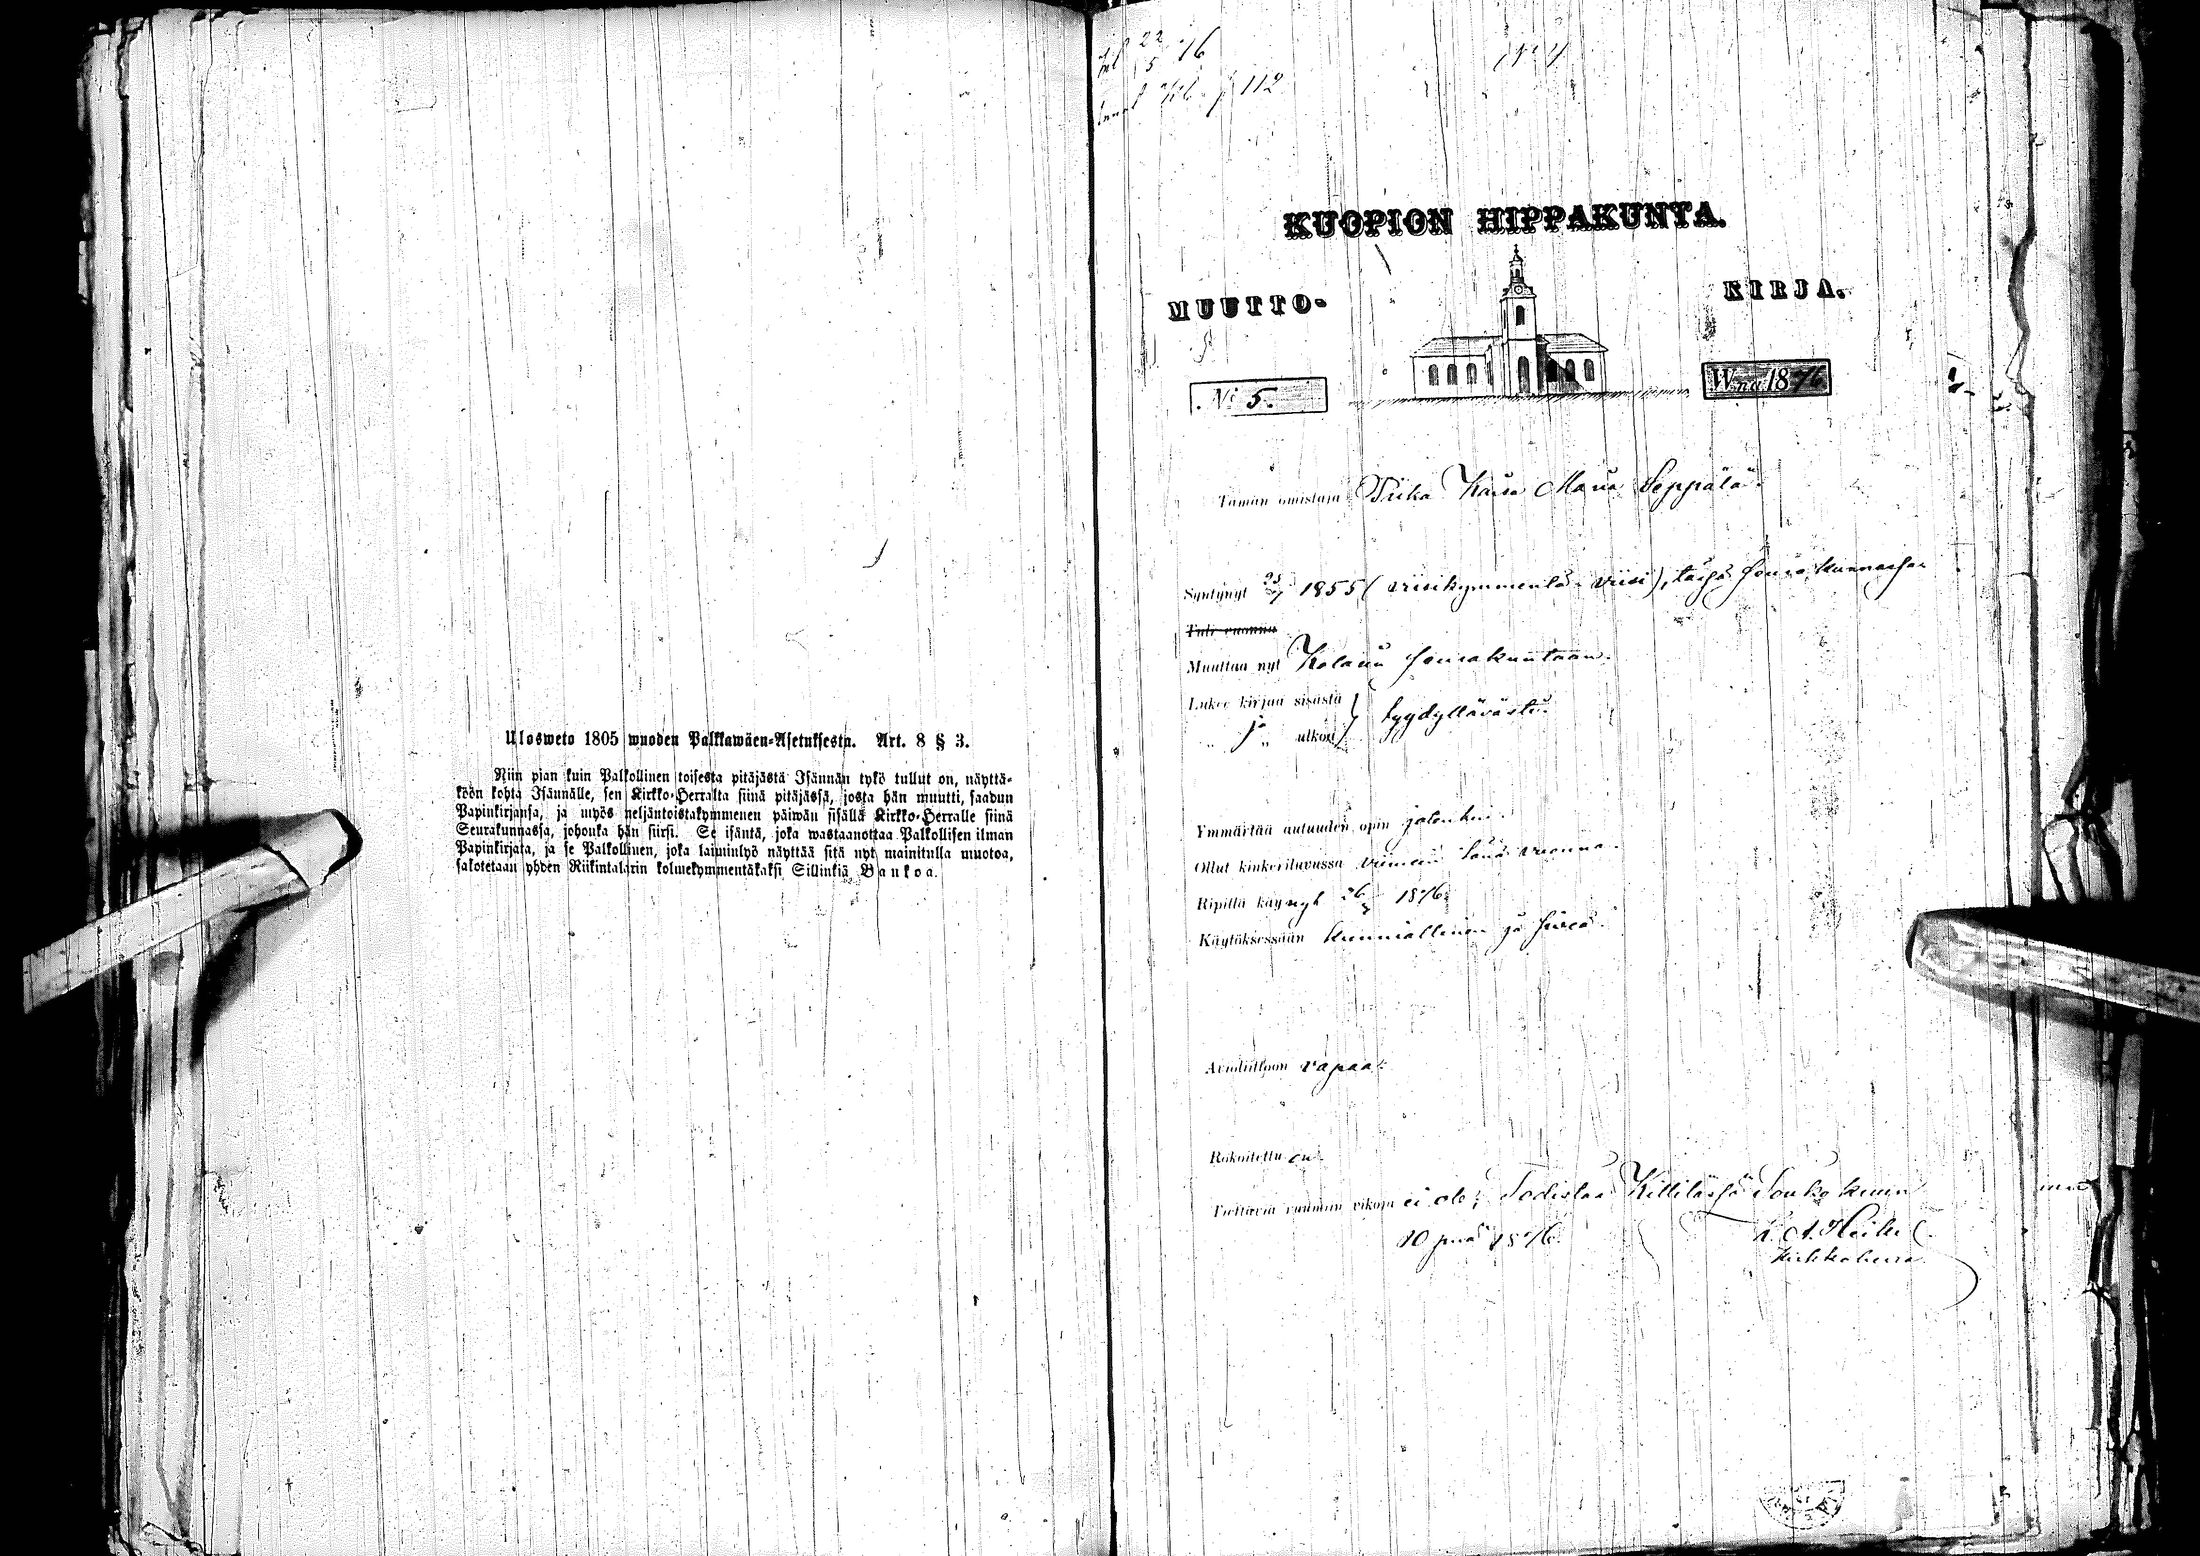 Ulosweto 1805 wuoden Palkkawäen-Asetuksesta. Art. 8 § 3.
Niin pian kuin Palkollinen toisesta pitäjästä Isännän tykö tullut on, näyttä-
köön kohta Isännälle, sen Kirkko-Herralta siinä pitäjässä, josta hän muutti, saadun
Papinkirjansa, ja myös neljäntoistakymmenen päiwän sisällä Kirkko-Herralle siinä
Seurakunnassa, johonka hän siirsi. Se isäntä, joka wastaanottaa Palkollisen ilman
Papinkirjata, ja se Palkollinen, joka laiminlyö näyttää sitä nyt mainitulla muotoa,
sakotetaan yhden Riikintalarin kolmekymmentäkaksi Sillinkiä Bankoa.
22/5 76
112
KUOPION HIPPAKUNTA.
MUUTTO- KIRJA.
No 5. Wna 1876
Tämän omistaja Piika Kaisa Maria Seppälä.
Syntynyt 1855 (viisikymmentä viisi), tässä seurakunnassa
Tuli vuonna
Muuttaa nyt Kolarin seurakuntaan.
Lukee kirjaa sisästä
„ ja „ ulkoa } tyydyttävästi.
Ymmärtää autuuden opin jotenkin.
Ollut kinkeriluvussa viimein tänä vuonna.
Ripillä käynyt 26/3 1876.
Käytöksessään kunniallinen ja siveä.
Avioliittoon vapaa.
Rokoitettu on.
Tiettäviä ruumiin vikoja ei ole; Todistaa Kittilässä Toukokuun
10 pnä 1876.
Kirkkoherra.